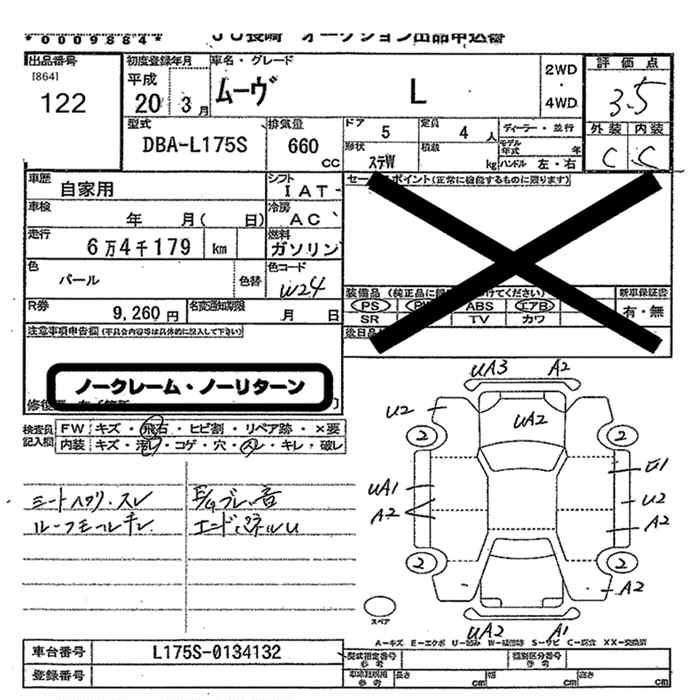 *0009884*
JU長崎 オークション出品申込書
出品番号
[864]
122
初度登録年月
平成
20 3月
車名・グレード
ムーヴ L
2WD
・
4WD
評価点
3.5
外装 内装
C C
型式
DBA-L175S
排気量
660
cc
ドア
5
定員
4 人
形状
ステW
積載
kg
ディーラー・並行
モデル
年式 年
ハンドル 左・右
車歴
自家用
シフト
IAT
車検
年 月( 日)
冷房
AC
走行
6万4千179 km
燃料
ガソリン
色
パール
色替
色コード
W24
R券
9,260 円
名変通知期限
月 日
セールスポイント(正常に稼働するものに限ります)
装備品
PS
ABS
エアB
SR
TV
カワ
新車保証書
有・無
後日品
注意事項申告欄(不具合内容等は具体的に記入して下さい)
ノークレーム・ノーリターン
検査員
記入欄
FW キズ・飛石・ヒビ割・リペア跡・×要
内装 キズ・汚レ・コゲ・穴・スレ・キレ・破レ
エンドパネルU
UA3 A2
U2
UA2
2
2
UA1
A2
U2
A2
2
2
A2
UA2 A1
スペア
A-キズ E-エクボ U-凹み W-補修跡 S-サビ C-腐食 XX-交換済
車台番号
L175S-0134132
登録番号
型式指定番号
参考
類別区分番号
参考
長さ cm
幅 cm
高さ cm